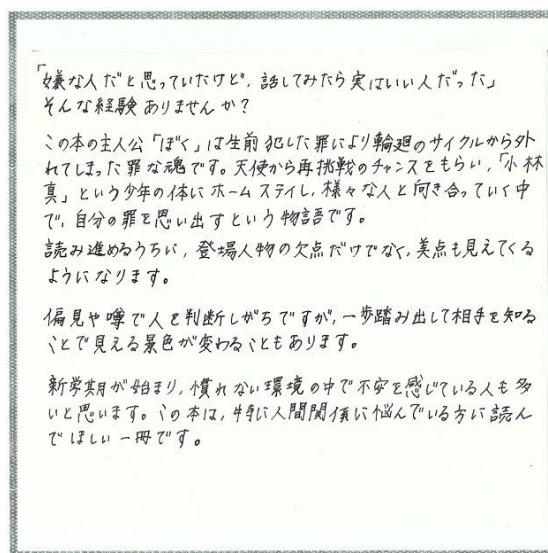 「嫌な人だと思っていたけど、話してみたら実はいい人だった」
そんな経験ありませんか?
この本の主人公「ぼく」は生前犯した罪により輪廻のサイクルから外
れてしまった罪な魂です。天使から再挑戦のチャンスをもらい、「小林
真」という少年の体にホームステイし、様々な人と向き合っていく中
で、自分の罪を思い出すという物語です。
読み進めるうちに、登場人物の欠点だけでなく、美点も見えてくる
ようになります。
偏見や噂で人を判断しがちですが、一歩踏み出して相手を知る
ことで見える景色が変わることもあります。
新学期が始まり、慣れない環境の中で不安を感じている人も多
いと思います。この本は、特に人間関係に悩んでいる方に読ん
でほしい一冊です。